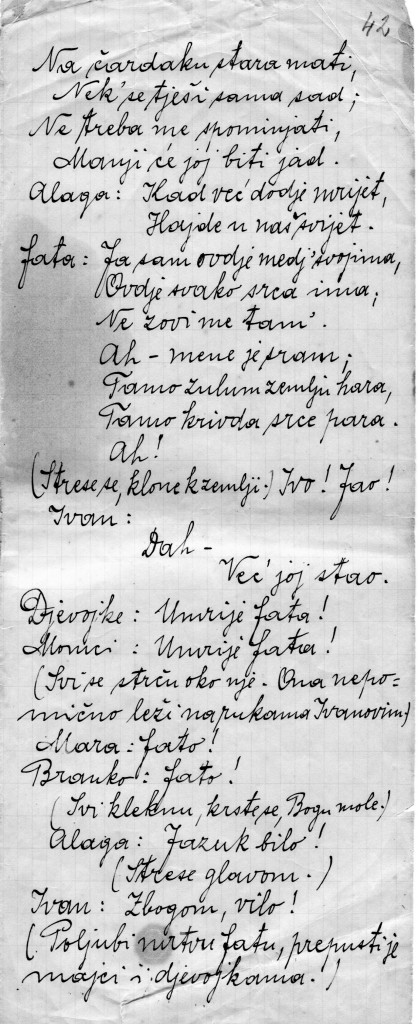 42
Na čardaku stara mati,
Nek' se tješi sama sad;
Ne treba me spominjati,
Manji će joj biti jad.
Alaga: Kad već dodje mrijet,
Hajde u naš svijet.
Fata: Ja sam ovdje medj' svojima,
Ovdje svako srca ima;
Ne zovi me tam'.
Ah – mene je sram;
Tamo zulum zemlju hara,
Tamo krivda srce para.
Ah!
(Strese se, klone k zemlji.) Ivo! Jao!
Ivan:
Dah –
Već joj stao.
Djevojke: Umrije Fata!
Momci: Umrije Fata!
(Svi se strču oko nje. Ona nepo=
mično leži na rukama Ivanovim)
Mara: Fato!
Branko: Fato!
(Svi kleknu, krste se, Bogu mole.)
Alaga: Jazuk bilo!
(Strese glavom.)
Ivan: Zbogom, vilo!
(Poljubi mrtvu Fatu, prepusti je
majci i djevojkama.)